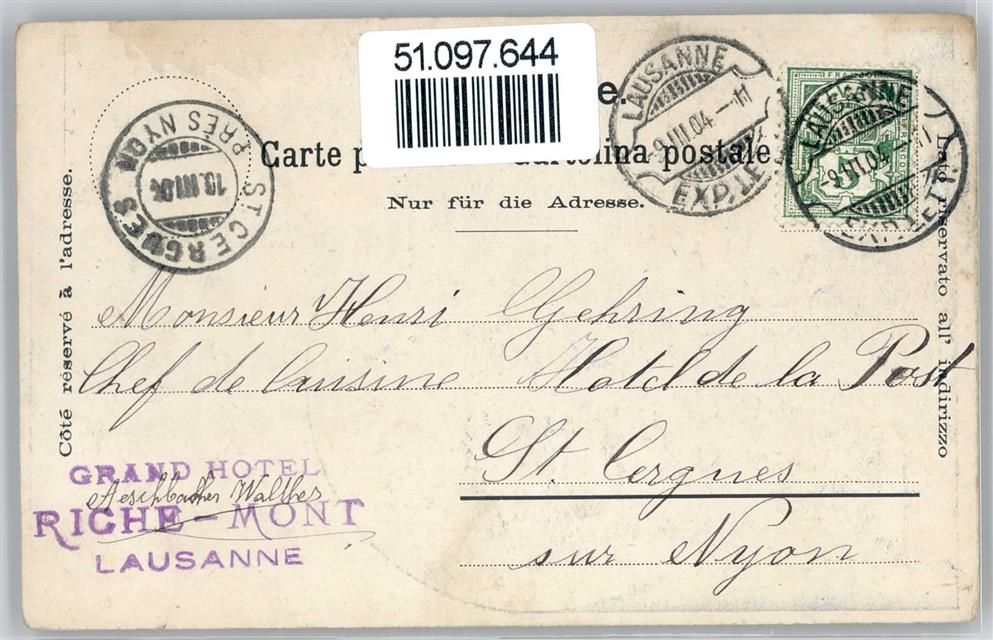 51.097.644
e.
Carte p
artolina postale
Nur für die Adresse.
Côté réservé à l'adresse.
Lato riservato all' indirizzo
ST CERGUES
PRÈS NYON
10.III.04
LAUSANNE
-9.III.04.-11
EXP. LE
LAUSANNE
-9.III.04.-11
EXP. LET
FRANCO
5
Monsieur Henri Gehring
Chef de Cuisine Hotel de la Post
St. Cergues
sur Nyon
GRAND HOTEL
Aeschbacher Walther
RICHE-MONT
LAUSANNE